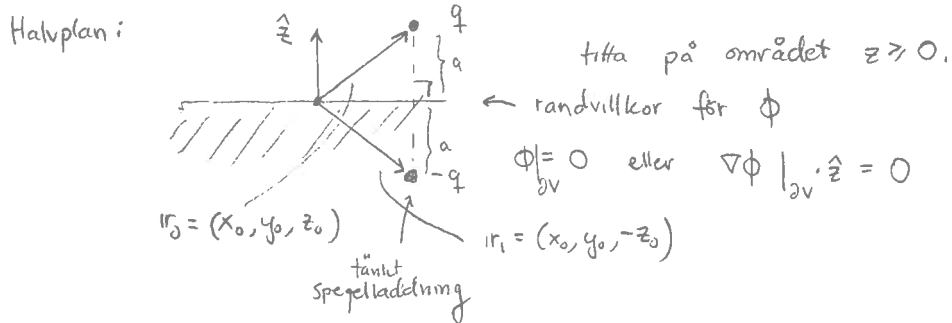 Halvplan:
ẑ
q
a
titta på området z ≥ 0.
← randvillkor för ϕ
a
-q
ϕ|∂V = 0 eller ∇ϕ|∂V · ẑ = 0
𝕣₀ = (x₀, y₀, z₀)
𝕣₁ = (x₀, y₀, -z₀)
tänkt
spegelladdning